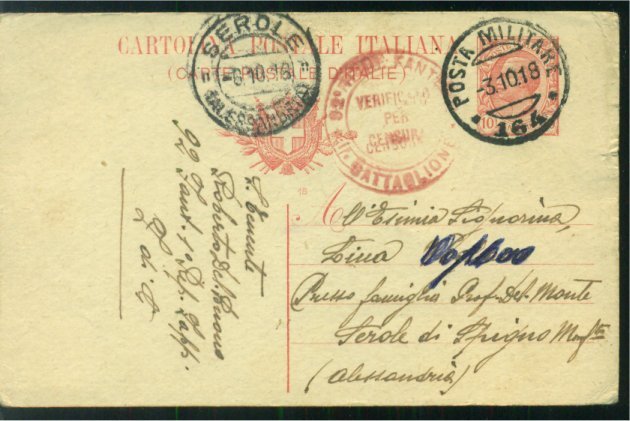 CARTOLINA POSTALE ITALIANA
(CARTE POSTALE D'ITALIE)
SEROLE
-6.10.18
(ALESSANDRIA)
92° FANT
VERIFICATO
PER
CENSURA
BATTAGLIONE
POSTA MILITARE
-3.10.18
164
10
15
All'Esimia Signorina,
Lina
Presso famiglia Prof. Del Monte
Serole di Spigno Monf.to
(Alessandria)
Roberto Del Buono
92 Fant. 1° Rep. Zapp.